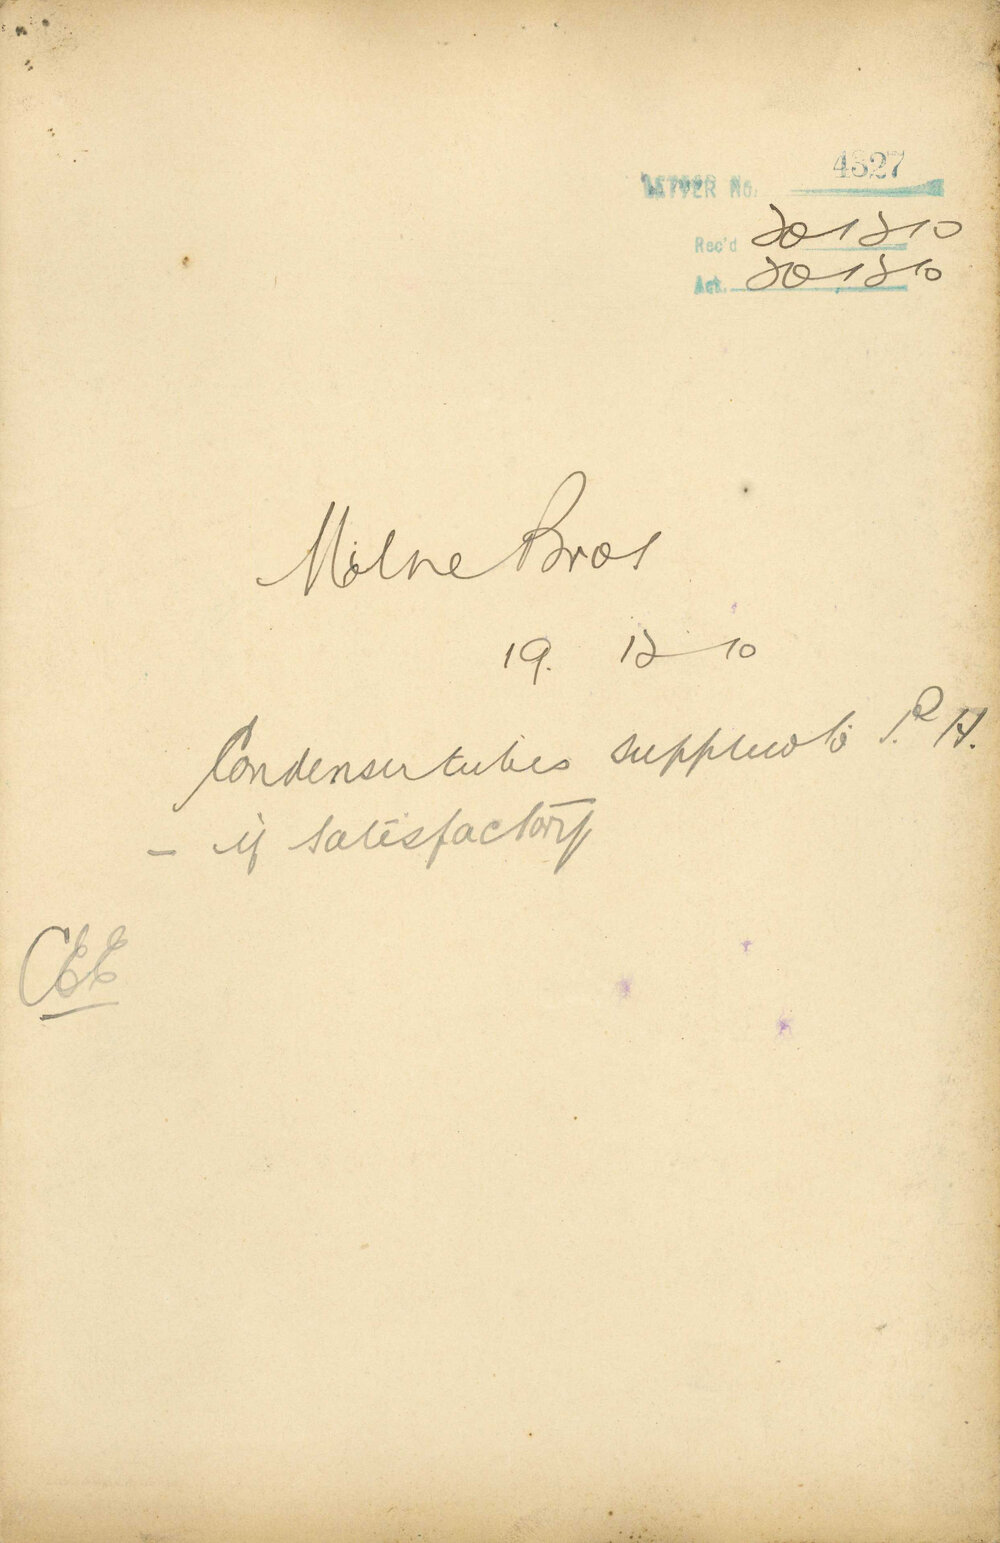 LETTER No. 4327
Rec'd 20 12 10
Ack. 20 12 10
Milne Bros
19. 12 10
Condenser tubes supplied to P. H.
- if satisfactory
CEE